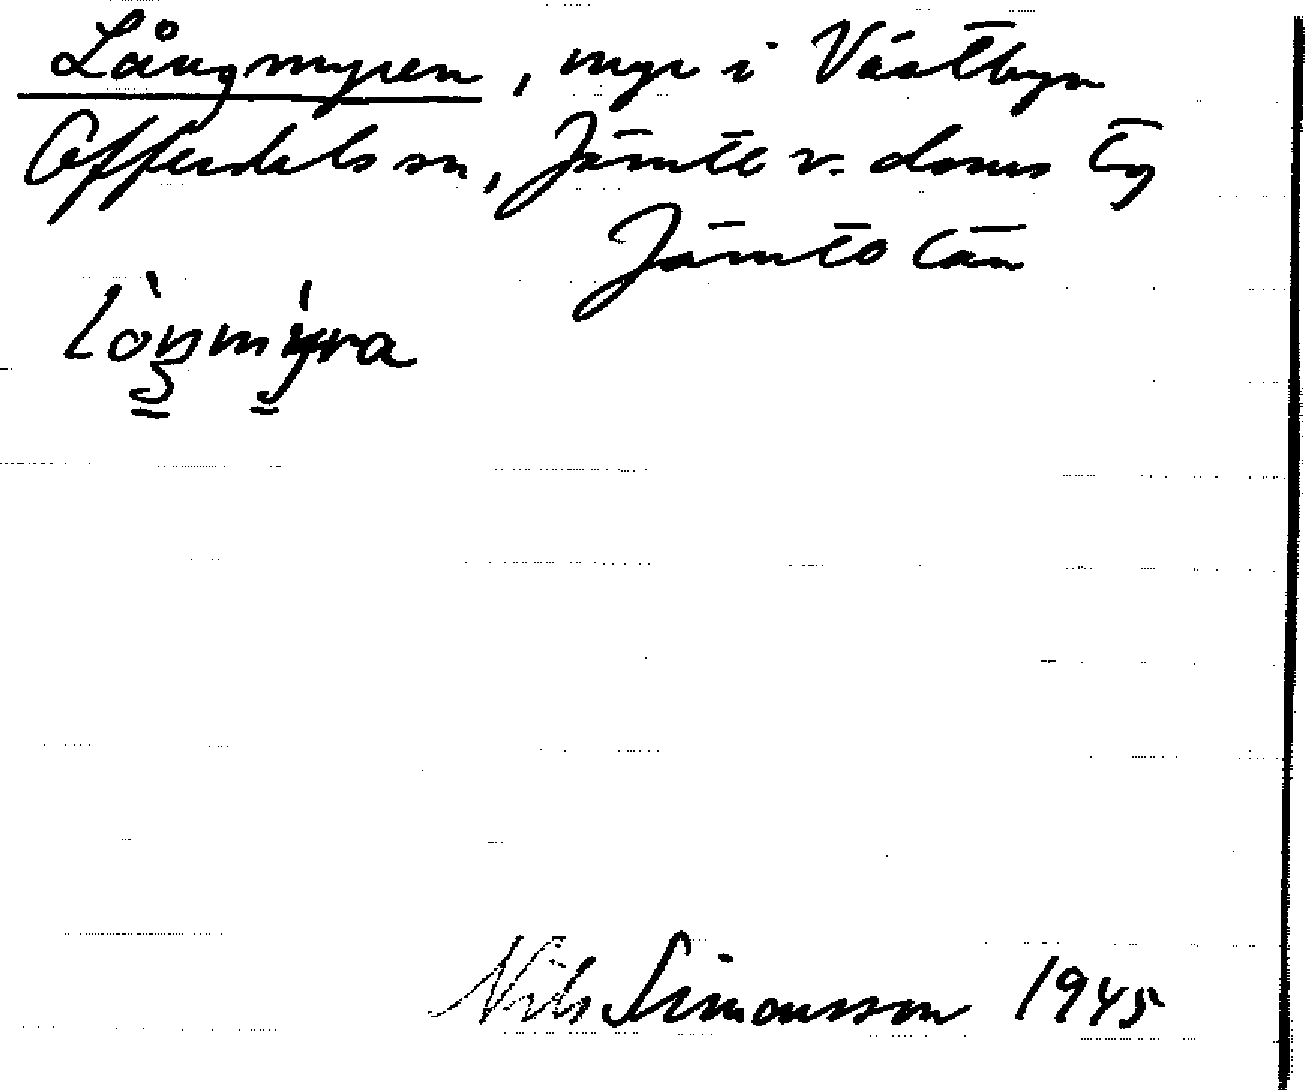 Långmyren, myr i Västbyn
Offerdals sn, Jämtl v. doms tg
Jämtl län
Nils Simonsson 1945